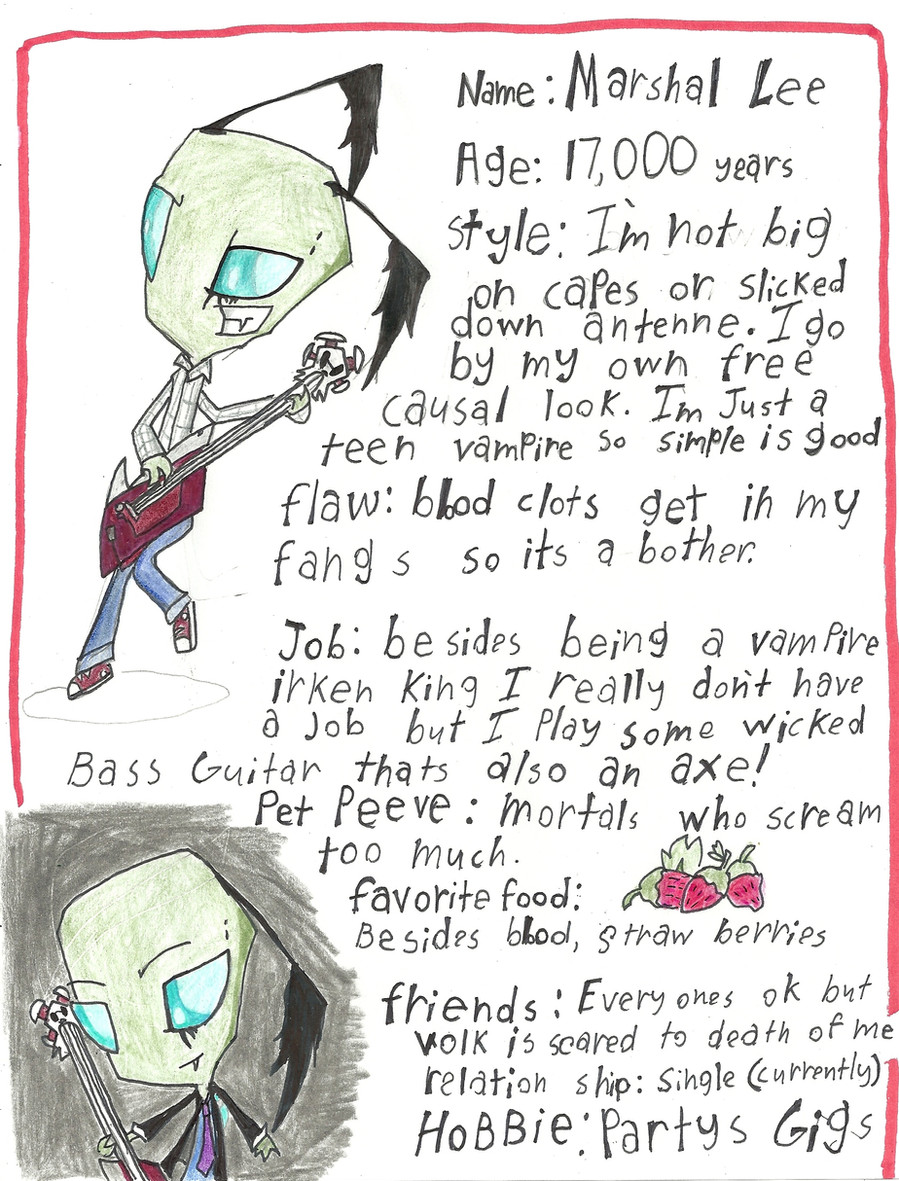 Name: Marshal Lee
Age: 17,000 years
style: I'm not big
on capes or slicked
down antenne. I go
by my own free
causal look. Im Just a
teen vampire so simple is good
flaw: blood clots get in my
fangs so its a bother.
Job: besides being a vampire
irken King I really don't have
a Job but I Play some wicked
Bass Guitar thats also an axe!
Pet Peeve: mortals who scream
too much.
favorite food:
Besides blood, straw berries
friends: Every ones ok but
volk is scared to death of me
relation ship: Single (currently)
HoBBie: Partys Gigs